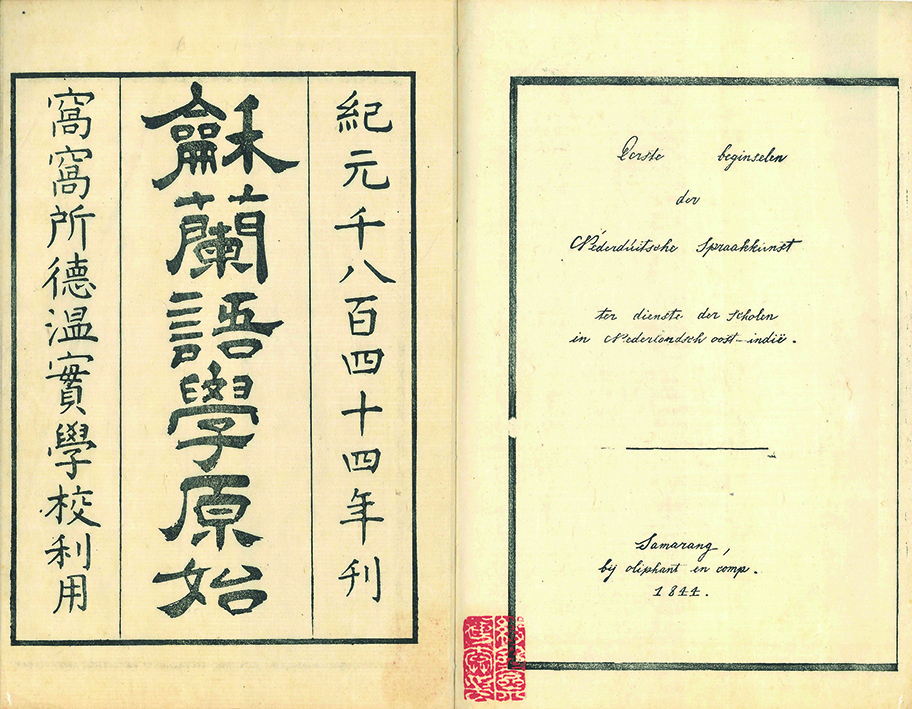 紀元千八百四十四年刊
龢蘭語學原始
窩窩所德溫實學校利用
Eerste beginselen
der
Nederdúitsche Spraakkúnst
ter dienste der scholen
in Nederlandsch oost-indië.
Samarang,
by oliphant en comp.
1844.